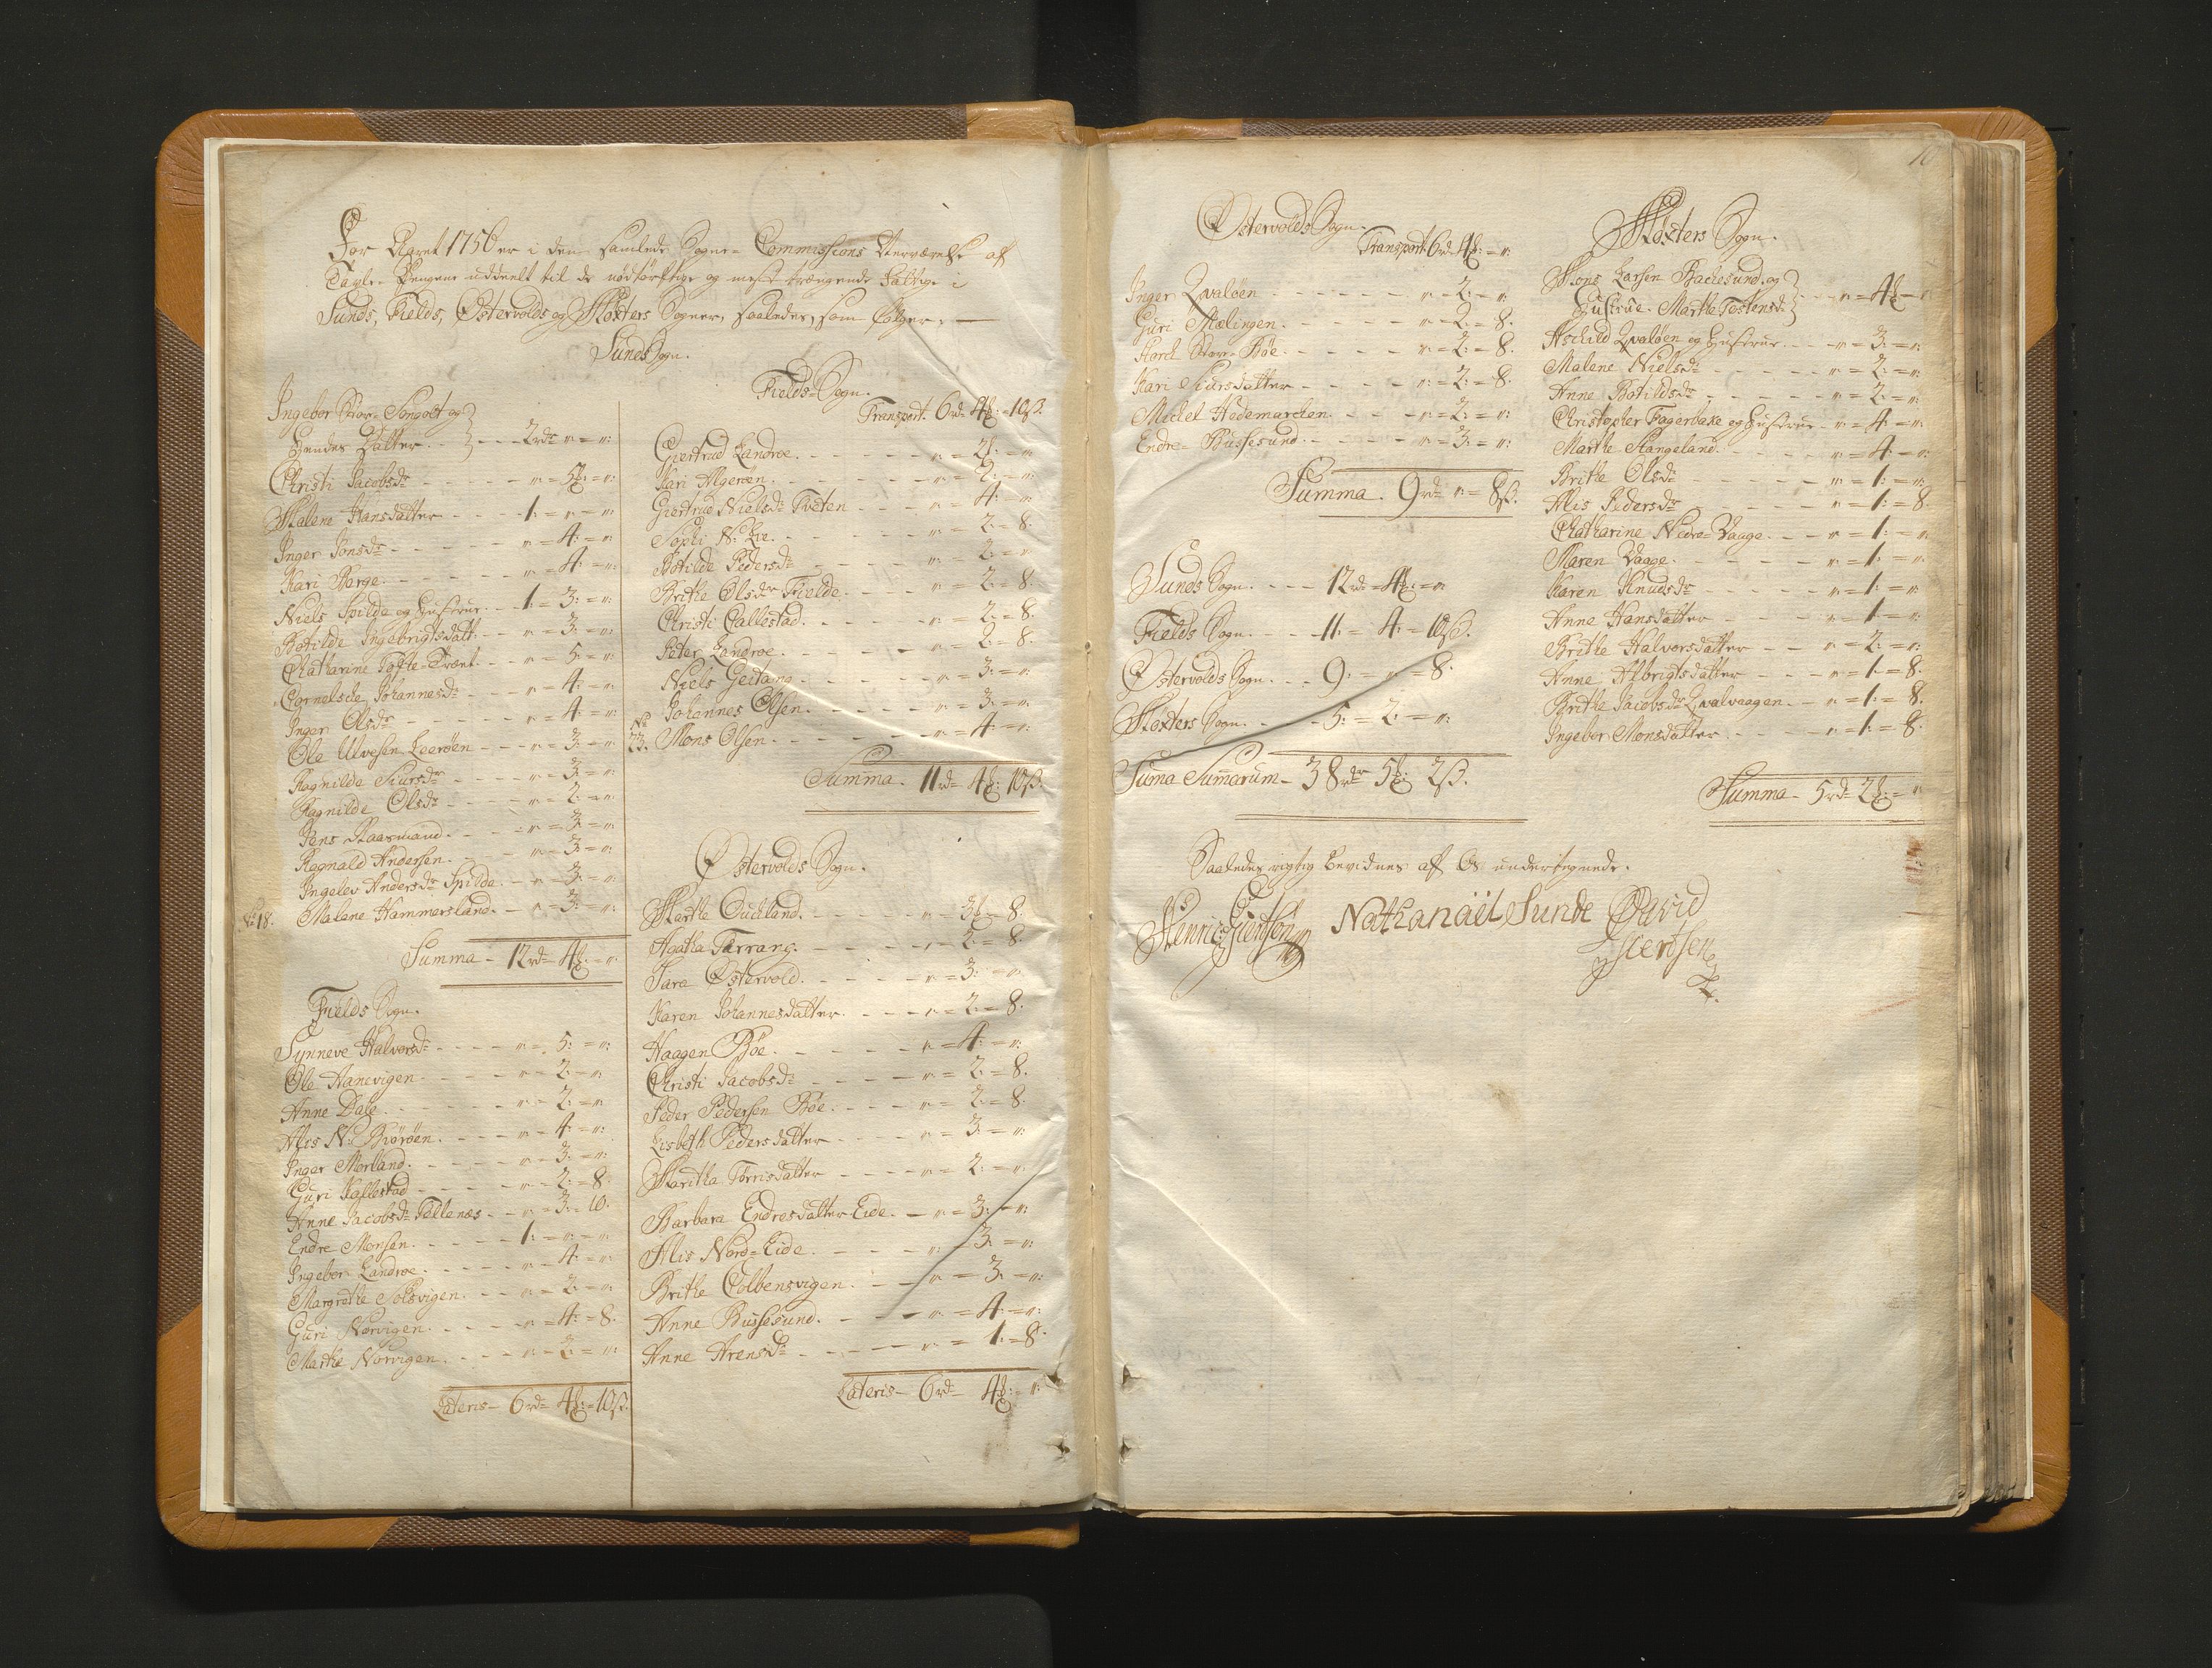 For Aaret 1756 er i den samlede Sogne-Commissions Overværelse af
Tavle-Pengene uddeelt til de nødtørftige og mest trængende Fattige i
Sunds, Fields, Østervolds og Møxters Sogner, saaledes, som følger,
Sunds Sogn.
Ingebor Stor-Songolt og
hendes Datter. - - 2 rdr " = ":
Christi Jacobsdr - - - " = 5 = ":
Malene Hansdatter - - - 1: = " = ":
Inger Jonsdr - - - " = 4: = ":
Kari Barge. - - - " = 4: = ":
Niels Spilde og Hustrue. - - 1: = 3: = ":
Botilde Ingebrigtsdatt: - - " = 3: = ":
Chatharine Tofte-Trænt. - - " = 5: = ":
Cornelsche Johannesdr - - - " = 4: = ":
Inger Olsdr - - - " = 4: = ":
Ole Ulvesen Leerøen - - - " = 3: = ":
Ragnilde Siursdr - - - " = 3: = ":
Ragnilde Olsdr - - - " = 2: = ":
Jens Raasmand. - - - " = 3: = ":
Ragnald Andersen. - - - " = 3: = ":
Ingelev Andersdr Spilde. - " = 3: = ":
No 18. Malene Hammersland. - " = 3: = ":
Summa - 12 rdr 4: = ":
Fields Sogn.
Synneve Halvorsdr - - - " = 5: = ":
Ole Hanevigen - - - " = 2: = ":
Anne Dale. - - - " = 2: = ":
Alis N: Biørøen. - - - " = 4: = ":
Inger Morland. - - - " = 3: = ":
Guri Kallestad - - - " = 2: = 8.
Anne Jacobsdr Tellenæs - - " = 3: = 10.
Endre Monsen. - - - 1: = " = ":
Ingebor Landroe. - - - " = 4: = ":
Margrethe Solsvigen. - - " = 2: = ":
Guri Norvigen. - - - " = 4: = 8.
Marthe Norvigen. - - - " = 2: = ":
Lateris - 6 rdr 4: = 10 ß.
Fields Sogn.
Transport. 6 rdr 4: = 10 ß.
Giertrud Landroe. - - - " = 2: = "
Kari Algerøen. - - - " = 2: = "
Giertrud Nielsdr Tveten - - - " = 4: = "
Sophi N: Lie. - - - " = 2: = 8.
Botilde Pedersdr - - - " = 2: = "
Brithe Olsdr Fielde. - - - " = 2: = 8.
Christi Callestad. - - - " = 2: = 8.
Peter Landroe. - - - " = 2: = 8.
Niels Geitano - - - " = 3: = ":
Johannes Olsen. - - - " = 3: = ":
No 23. Mons Olsen. - - - " = 4: = ":
Summa - 11 rdr 4: 10 ß.
Østervolds Sogn.
Marthe Ouchland. - - - " = 3 = 8.
Agatha Tærrang. - - - " = 2: = 8.
Tara Østervold. - - - " = 3: = ":
Karen Johannesdatter. - - - " = 2: = 8.
Haagen Bøe. - - - " = 4: = ":
Christi Jacobsdr - - - " = 2: = 8.
Peder Pedersen Bøe. - - - " = 2: = 8.
Lisbeth Pedersdatter - - - " = 3: = ":
Maritha Torrisdatter - - - " = 2: = ":
Barbara Endresdatter Eide. - " = 3: = ":
Alis Nord-Eide. - - - " = 3: = ":
Brithe Colbensvigen. - - " = 3: = ":
Anne Bussesund. - - - " = 4: = ":
Anne Arensdr - - - " = 1: = 8.
Lateris - 6 rdr 4: = ":
10
Østervolds Sogn.
Transport. 6 rdr 4: = ":
Inger Qvaløen - - - " = 2: = ":
Guri Stælingen. - - - " = 2: = 8.
Starck Stor-Bøe. - - - " = 2: = 8.
Kari Siursdatter - - - " = 2: = 8.
Michel Hedemarchen. - - " = 2: = ":
Endre Bussesund. - - - " = 3: = ":
Summa. 9 rdr " = 8 ß.
Sunds Sogn. - - - 12 rdr = 4: = ":
Fields Sogn. - - - 11: = 4: = 10 ß.
Østervolds Sogn. - - 9: = " = 8.
Møxters Sogn. - - - 5: = 2: = ":
Suma Summarum - 38 rdr 5: 2 ß.
Møxters Sogn.
Mons Larsen Bachesund. og
Hustrue. Marthe Tostensdr - " = 4 = "
Aschild Qvaløen og Hustrue. - - " = 3: = ":
Malene Nielsdr - - - " = 2: = ":
Anne Botildsdr - - - " = 2: = ":
Christopher Fagerbake og Hustrue - " = 4: = ":
Marthe Hangeland. - - - " = 4: = ":
Brithe Olsdr - - - " = 1: = ":
Alis Pedersdr - - - " = 1: = 8.
Chatharine Nedre-Vaage. - - " = 1: = ":
Maren Vaage. - - - " = 1: = ":
Karen Knudsdr - - - " = 1: = ":
Anne Hansdatter - - - " = 1: = ":
Brithe Halvorsdatter - - " = 2: = ":
Anne Albrigtsdatter - - - " = 1: = 8.
Brithe Jacobsdr Qvalvaagen. - " = 1: = 8.
Ingebor Monsdatter. - - - " = 1: = 8.
Summa - 5 rdr 2: = "
Saaledes rigtig bevidnes af Os undertegnede.
Henric Giertsøn Nathanaël Sunde David
Giertsen